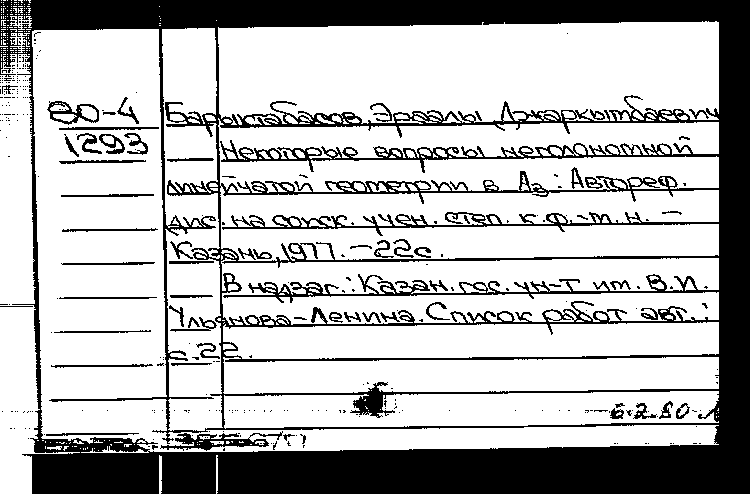 80-4
1293
Барыктабасов, Эраалы Джаркымбаевич
Некоторые вопросы неголономной
линейчатой геометрии в А₃ : Автореф.
дис. на соиск. учен. степ. к.ф.-м.н. -
Казань, 1977. - 22с.
В надзаг.: Казан. гос. ун-т им. В.И.
Ульянова-Ленина. Список работ авт.:
с.22.
6.2.80